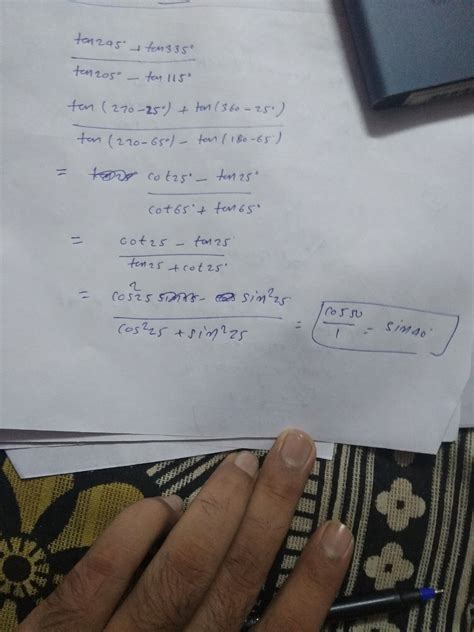 tan245° + tan335°
tan205° - tan115°
tan(270-25°) + tan(360-25°)
tan(270-65°) - tan(180-65°)
= cot25° - tan25°
cot65° + tan65°
= cot25 - tan25
tan25 + cot25°
= cos²25 - sin²25
cos²25 + sin²25
= cos50
1
= sin40°